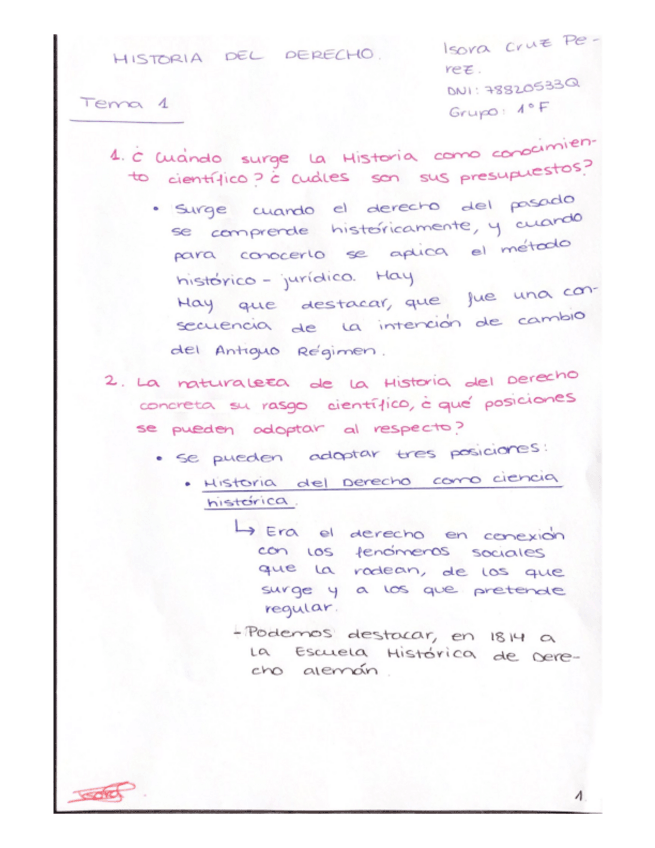 HISTORIA DEL DERECHO.
Isora Cruz Pe-
rez.
DNI: 78820533Q
Grupo: 1º F
Tema 1
1. ¿Cuándo surge la Historia como conocimien-
to científico? ¿Cuáles son sus presupuestos?
• Surge cuando el derecho del pasado
se comprende históricamente, y cuando
para conocerlo se aplica el método
histórico - jurídico. Hay
Hay que destacar, que fue una con-
secuencia de la intención de cambio
del Antiguo Régimen.
2. La naturaleza de la Historia del Derecho
concreta su rasgo científico, ¿qué posiciones
se pueden adoptar al respecto?
• Se pueden adoptar tres posiciones:
• Historia del Derecho como ciencia
histórica.
↳ Era el derecho en conexión
con los fenómenos sociales
que la rodean, de los que
surge y a los que pretende
regular.
- Podemos destacar, en 1814 a
la Escuela Histórica de Dere-
cho alemán.
Isora
1